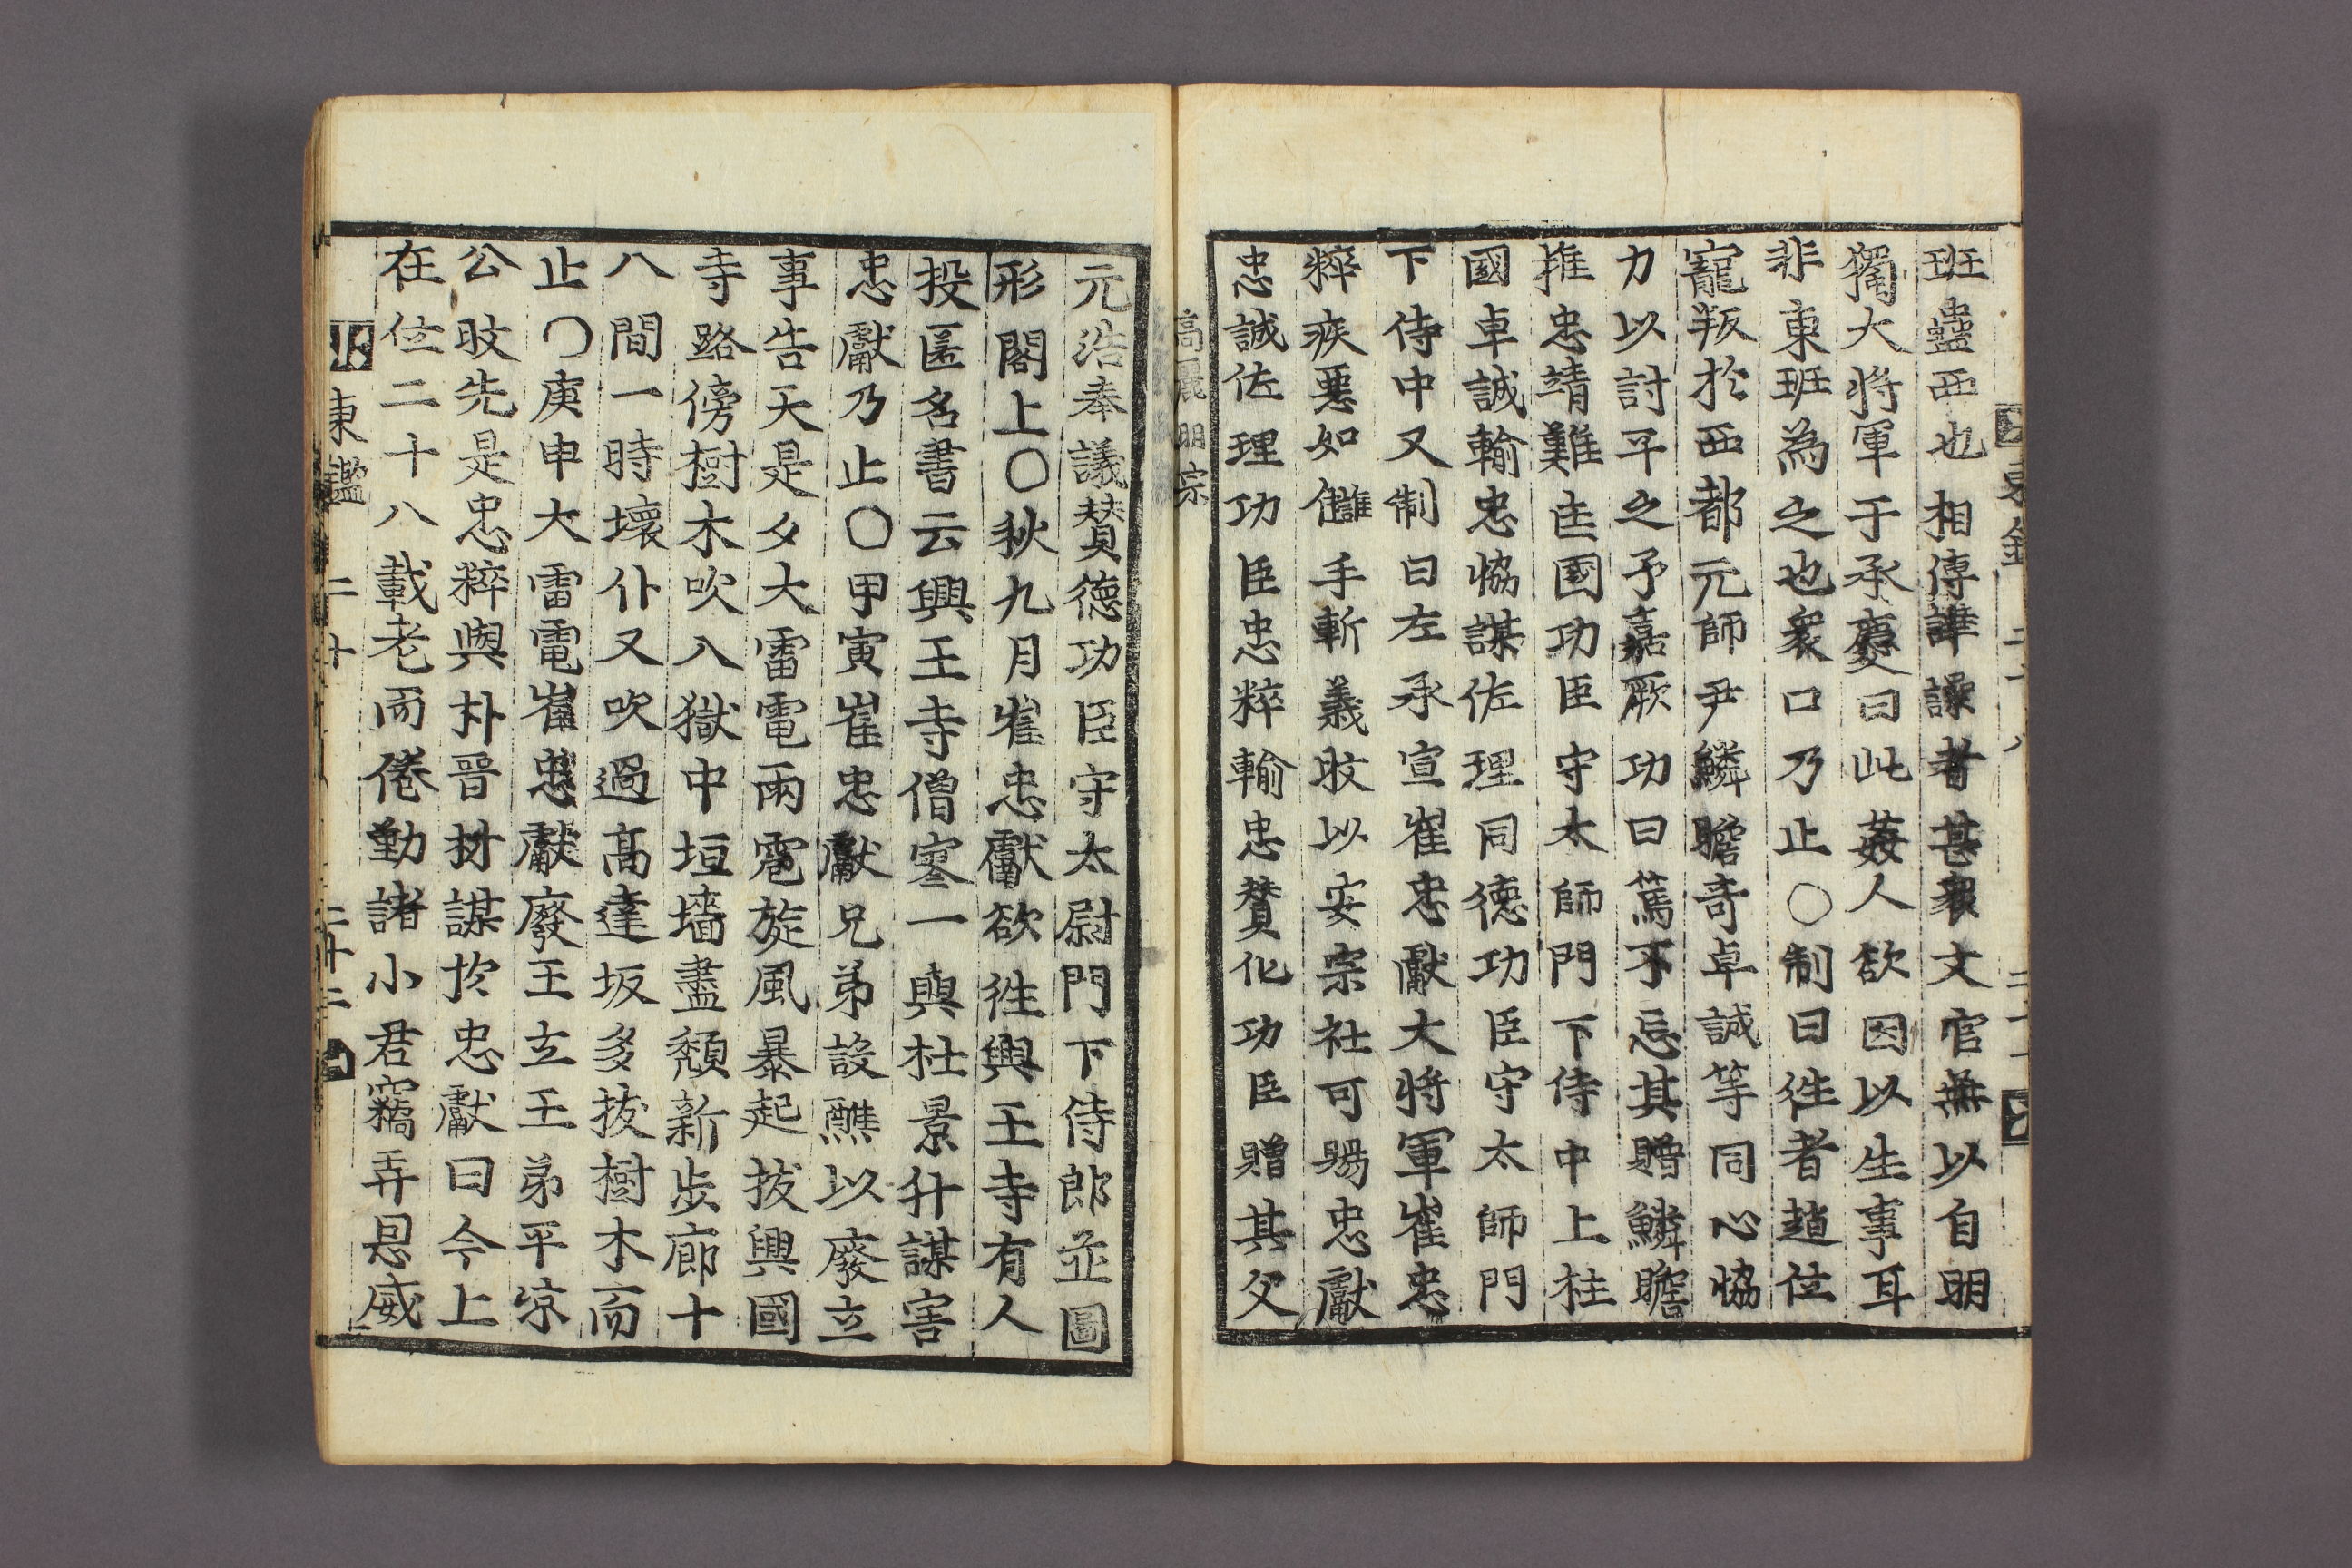 班蠱西也相傳譁譟者甚衆文官無以自明
獨大將軍于承慶曰此姦人欲因以生事耳
非東班為之也衆口乃止○制曰徃者趙位
寵叛於西都元師尹鱗瞻竒卓誠等同心恊
力以討平之予嘉厥功曰篤不忘其贈鱗瞻
推忠靖難匡國功臣守太師門下侍中上柱
國卓誠輸忠恊謀佐理同德功臣守太師門
下侍中又制曰左承宣崔忠獻大將軍崔忠
粹疾惡如讎手斬義旼以安宗社可賜忠獻
忠誠佐理功臣忠粹輸忠賛化功臣贈其父
高麗明宗
元浩奉議賛德功臣守太尉門下侍郎並圖
形閣上○秋九月崔忠獻欲徃興王寺有人
投匿名書云興王寺僧寥一與杜景升謀害
忠獻乃止○甲寅崔忠獻兄弟設醮以廢立
事告天是夕大雷電雨雹旋風暴起拔興國
寺路傍樹木吹入獄中垣墻盡頹新步廊十
八間一時壞仆又吹過高達坂多拔樹木而
止○庚申大雷電崔忠獻廢王立王弟平凉
公旼先是忠粹與朴晉材謀於忠獻曰今上
在位二十八載老而倦勤諸小君竊弄恩威
東鑑 二十 二十二